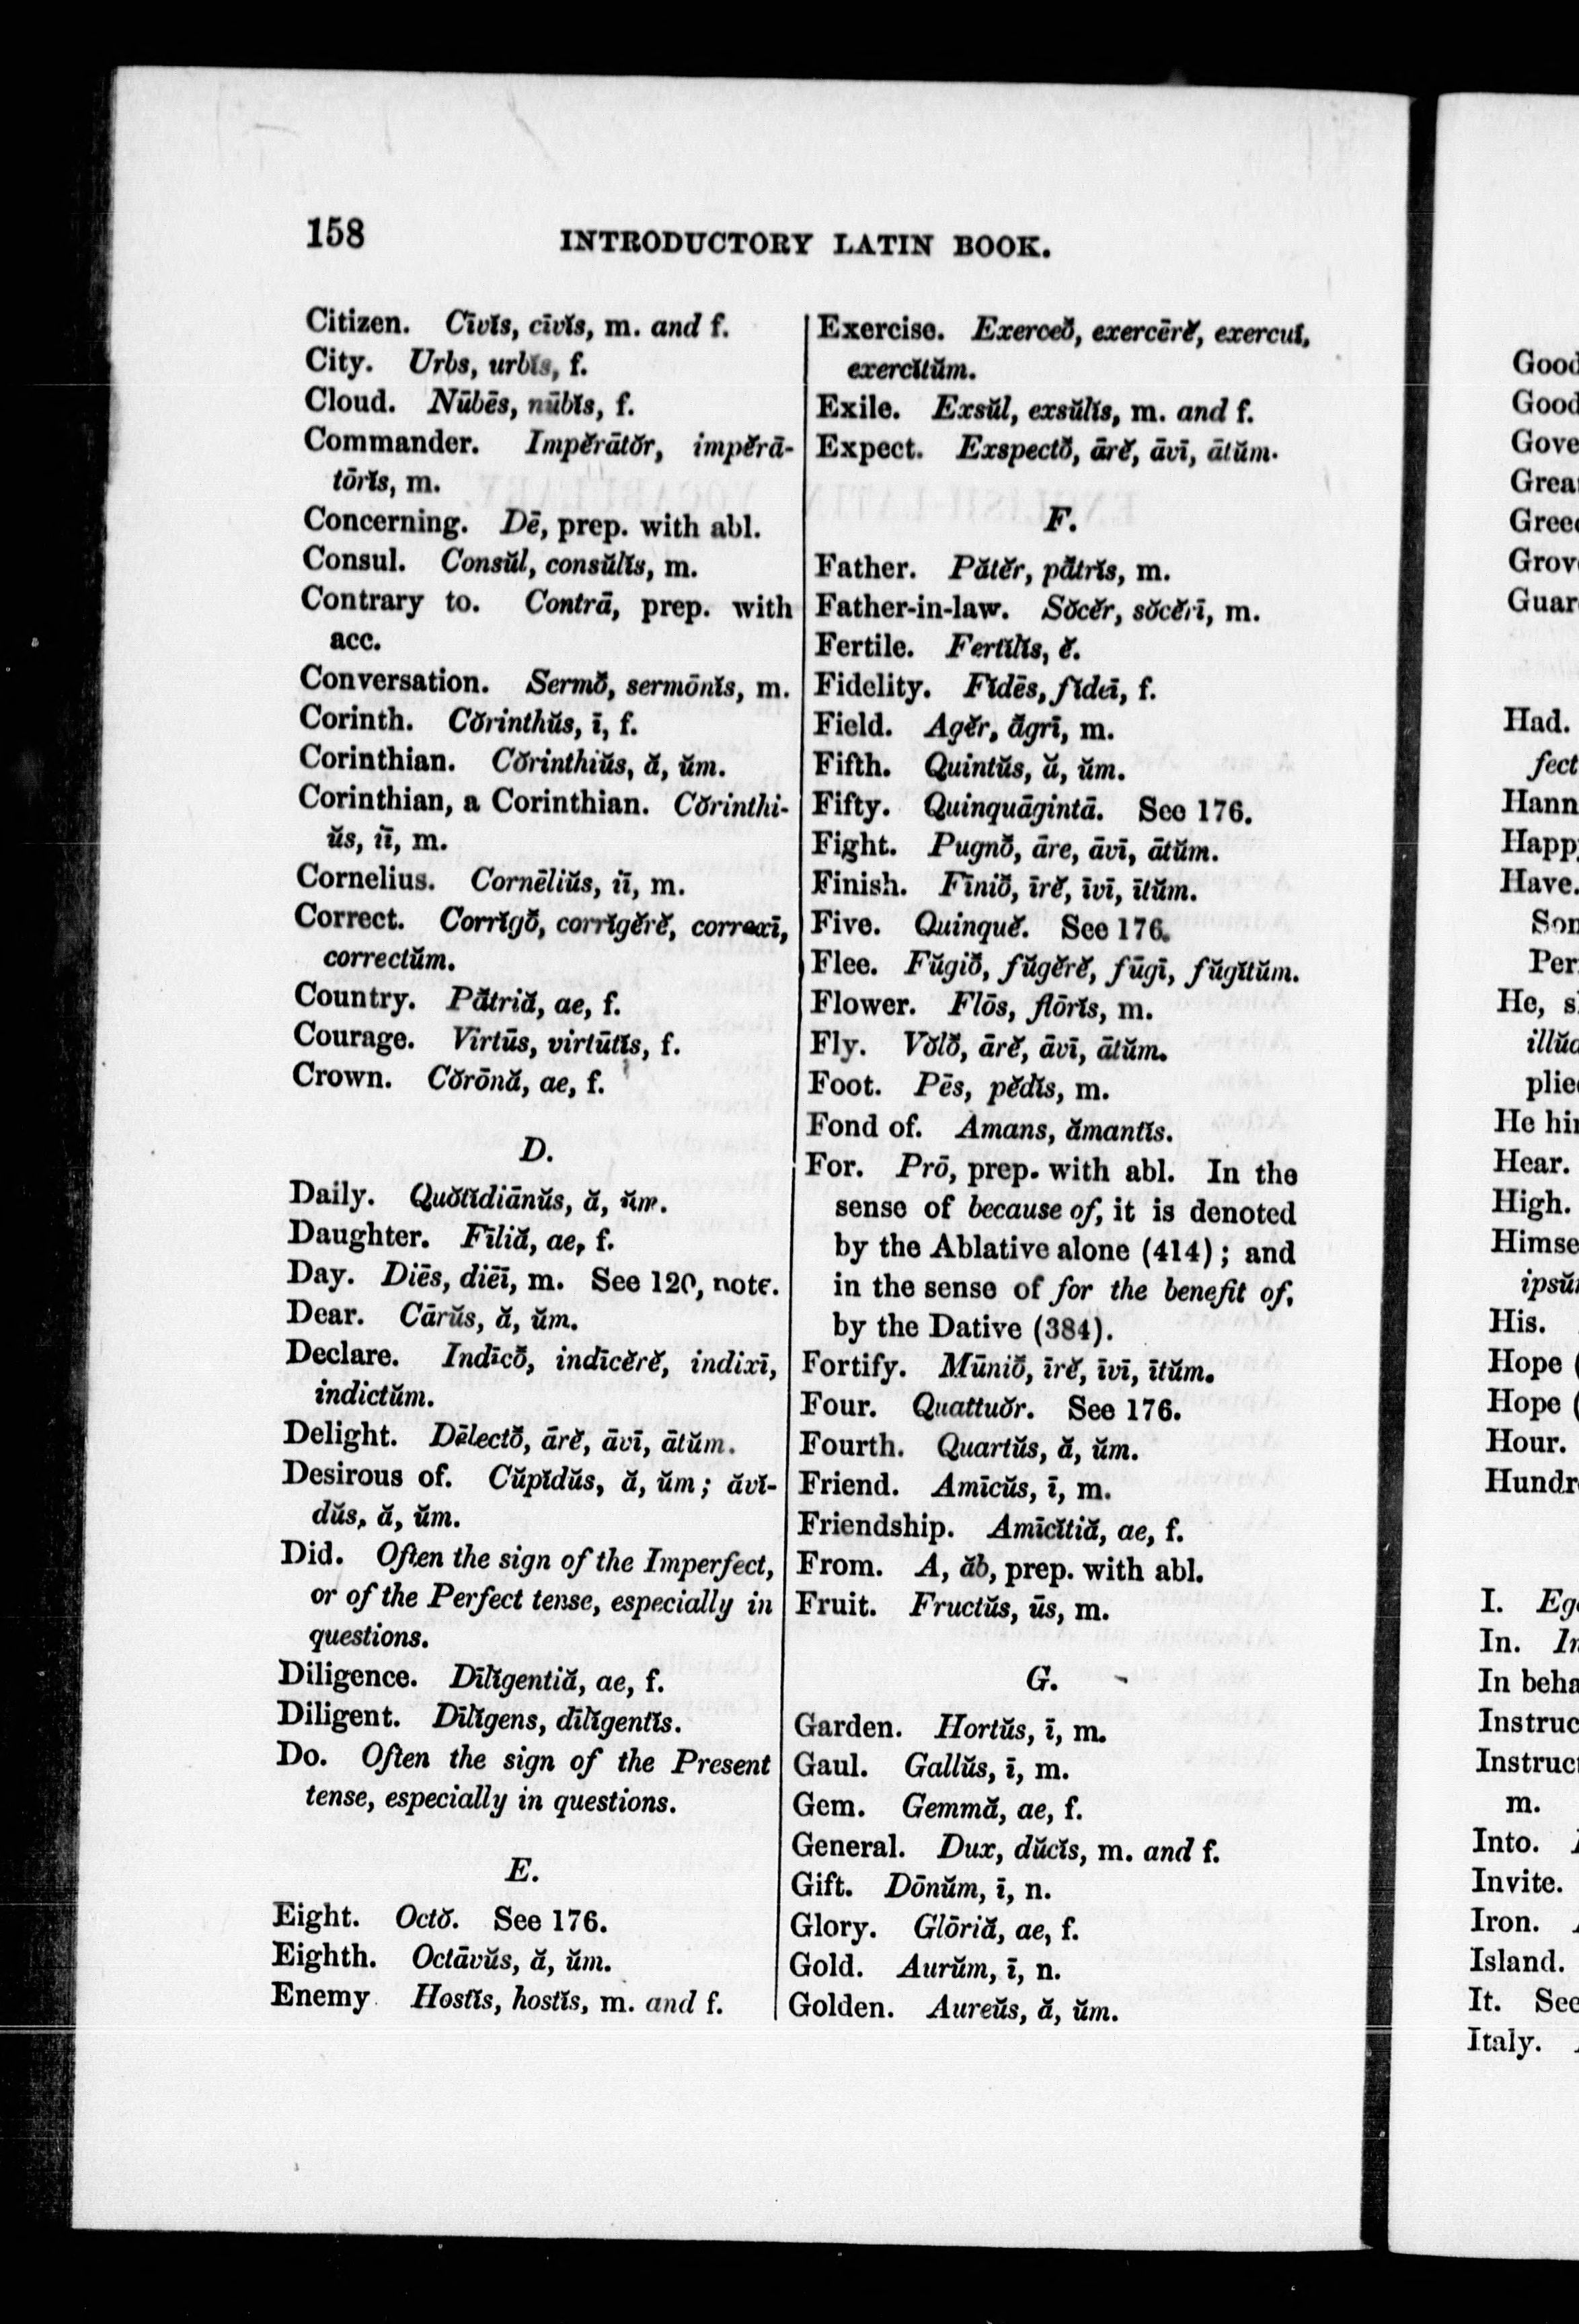 158
INTRODUCTORY LATIN BOOK.
Citizen. Cīvĭs, cīvĭs, m. and f.
City. Urbs, urbĭs, f.
Cloud. Nūbēs, nūbĭs, f.
Commander. Impĕrātŏr, impĕrā-
tōrĭs, m.
Concerning. Dē, prep. with abl.
Consul. Consŭl, consŭlĭs, m.
Contrary to. Contrā, prep. with
acc.
Conversation. Sermŏ, sermōnĭs, m.
Corinth. Cŏrinthŭs, ī, f.
Corinthian. Cŏrinthiŭs, ă, ŭm.
Corinthian, a Corinthian. Cŏrinthi-
ŭs, iī, m.
Cornelius. Cornēliŭs, iī, m.
Correct. Corrĭgŏ, corrĭgĕrĕ, correxī,
correctŭm.
Country. Pătriă, ae, f.
Courage. Virtūs, virtūtĭs, f.
Crown. Cŏrōnă, ae, f.
D.
Daily. Quŏtīdiānŭs, ă, ŭm.
Daughter. Fīliă, ae, f.
Day. Diēs, diēī, m. See 120, note.
Dear. Cārŭs, ă, ŭm.
Declare. Indīcŏ, indīcĕrĕ, indixī,
indictŭm.
Delight. Dēlectŏ, ārĕ, āvī, ātŭm.
Desirous of. Cŭpĭdŭs, ă, ŭm; ăvĭ-
dŭs, ă, ŭm.
Did. Often the sign of the Imperfect,
or of the Perfect tense, especially in
questions.
Diligence. Dīlĭgentiă, ae, f.
Diligent. Dīlĭgens, dīlĭgentĭs.
Do. Often the sign of the Present
tense, especially in questions.
E.
Eight. Octŏ. See 176.
Eighth. Octāvŭs, ă, ŭm.
Enemy Hostĭs, hostĭs, m. and f.
Exercise. Exerceŏ, exercērĕ, exercuī,
exercĭtŭm.
Exile. Exsŭl, exsŭlĭs, m. and f.
Expect. Exspectŏ, ārĕ, āvī, ātŭm.
F.
Father. Pătĕr, pătrĭs, m.
Father-in-law. Sŏcĕr, sŏcĕrī, m.
Fertile. Fertĭlĭs, ĕ.
Fidelity. Fĭdēs, fĭdeī, f.
Field. Agĕr, ăgrī, m.
Fifth. Quintŭs, ă, ŭm.
Fifty. Quinquāgintā. See 176.
Fight. Pugnŏ, āre, āvī, ātŭm.
Finish. Fīniŏ, īrĕ, īvī, ītŭm.
Five. Quinquĕ. See 176.
Flee. Fŭgiŏ, fŭgĕrĕ, fūgī, fŭgĭtŭm.
Flower. Flōs, flōrĭs, m.
Fly. Vŏlŏ, ārĕ, āvī, ātŭm.
Foot. Pēs, pĕdĭs, m.
Fond of. Amans, ămantĭs.
For. Prō, prep. with abl. In the
sense of because of, it is denoted
by the Ablative alone (414); and
in the sense of for the benefit of,
by the Dative (384).
Fortify. Mūniŏ, īrĕ, īvī, ītŭm.
Four. Quattuŏr. See 176.
Fourth. Quartŭs, ă, ŭm.
Friend. Amīcŭs, ī, m.
Friendship. Amīcĭtiă, ae, f.
From. A, ăb, prep. with abl.
Fruit. Fructŭs, ūs, m.
G.
Garden. Hortŭs, ī, m.
Gaul. Gallŭs, ī, m.
Gem. Gemmă, ae, f.
General. Dux, dŭcĭs, m. and f.
Gift. Dōnŭm, ī, n.
Glory. Glōriă, ae, f.
Gold. Aurŭm, ī, n.
Golden. Aureŭs, ă, ŭm.
Good
Good
Guar
Had.
fect
Hann
Happ
Have.
Per
He, s
illŭd
He hi
Hear.
High.
Himse
ipsŭ
His.
Hope (
Hope (
Hour.
Hundr
I. Eg
In. In
In beha
Instruc
Instruc
m.
Into.
Invite.
Iron.
Island.
It. See
Italy.